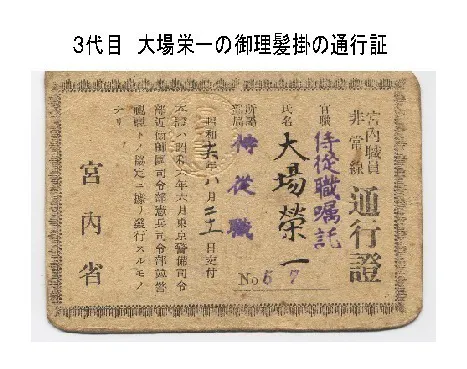 3代目 大場栄一の御理髪掛の通行証
宮內職員
非常線
通行證
官職 侍從職嘱託
氏名 大場榮一
No 57
所屬部局 侍從職
昭和 年八月 日交付
本證ハ昭和六年六月東京警備司令
部近衞師團司令部憲兵司令部 警
視廳ト協定ニ據リ發行スルモノ
ナリ
宮內省